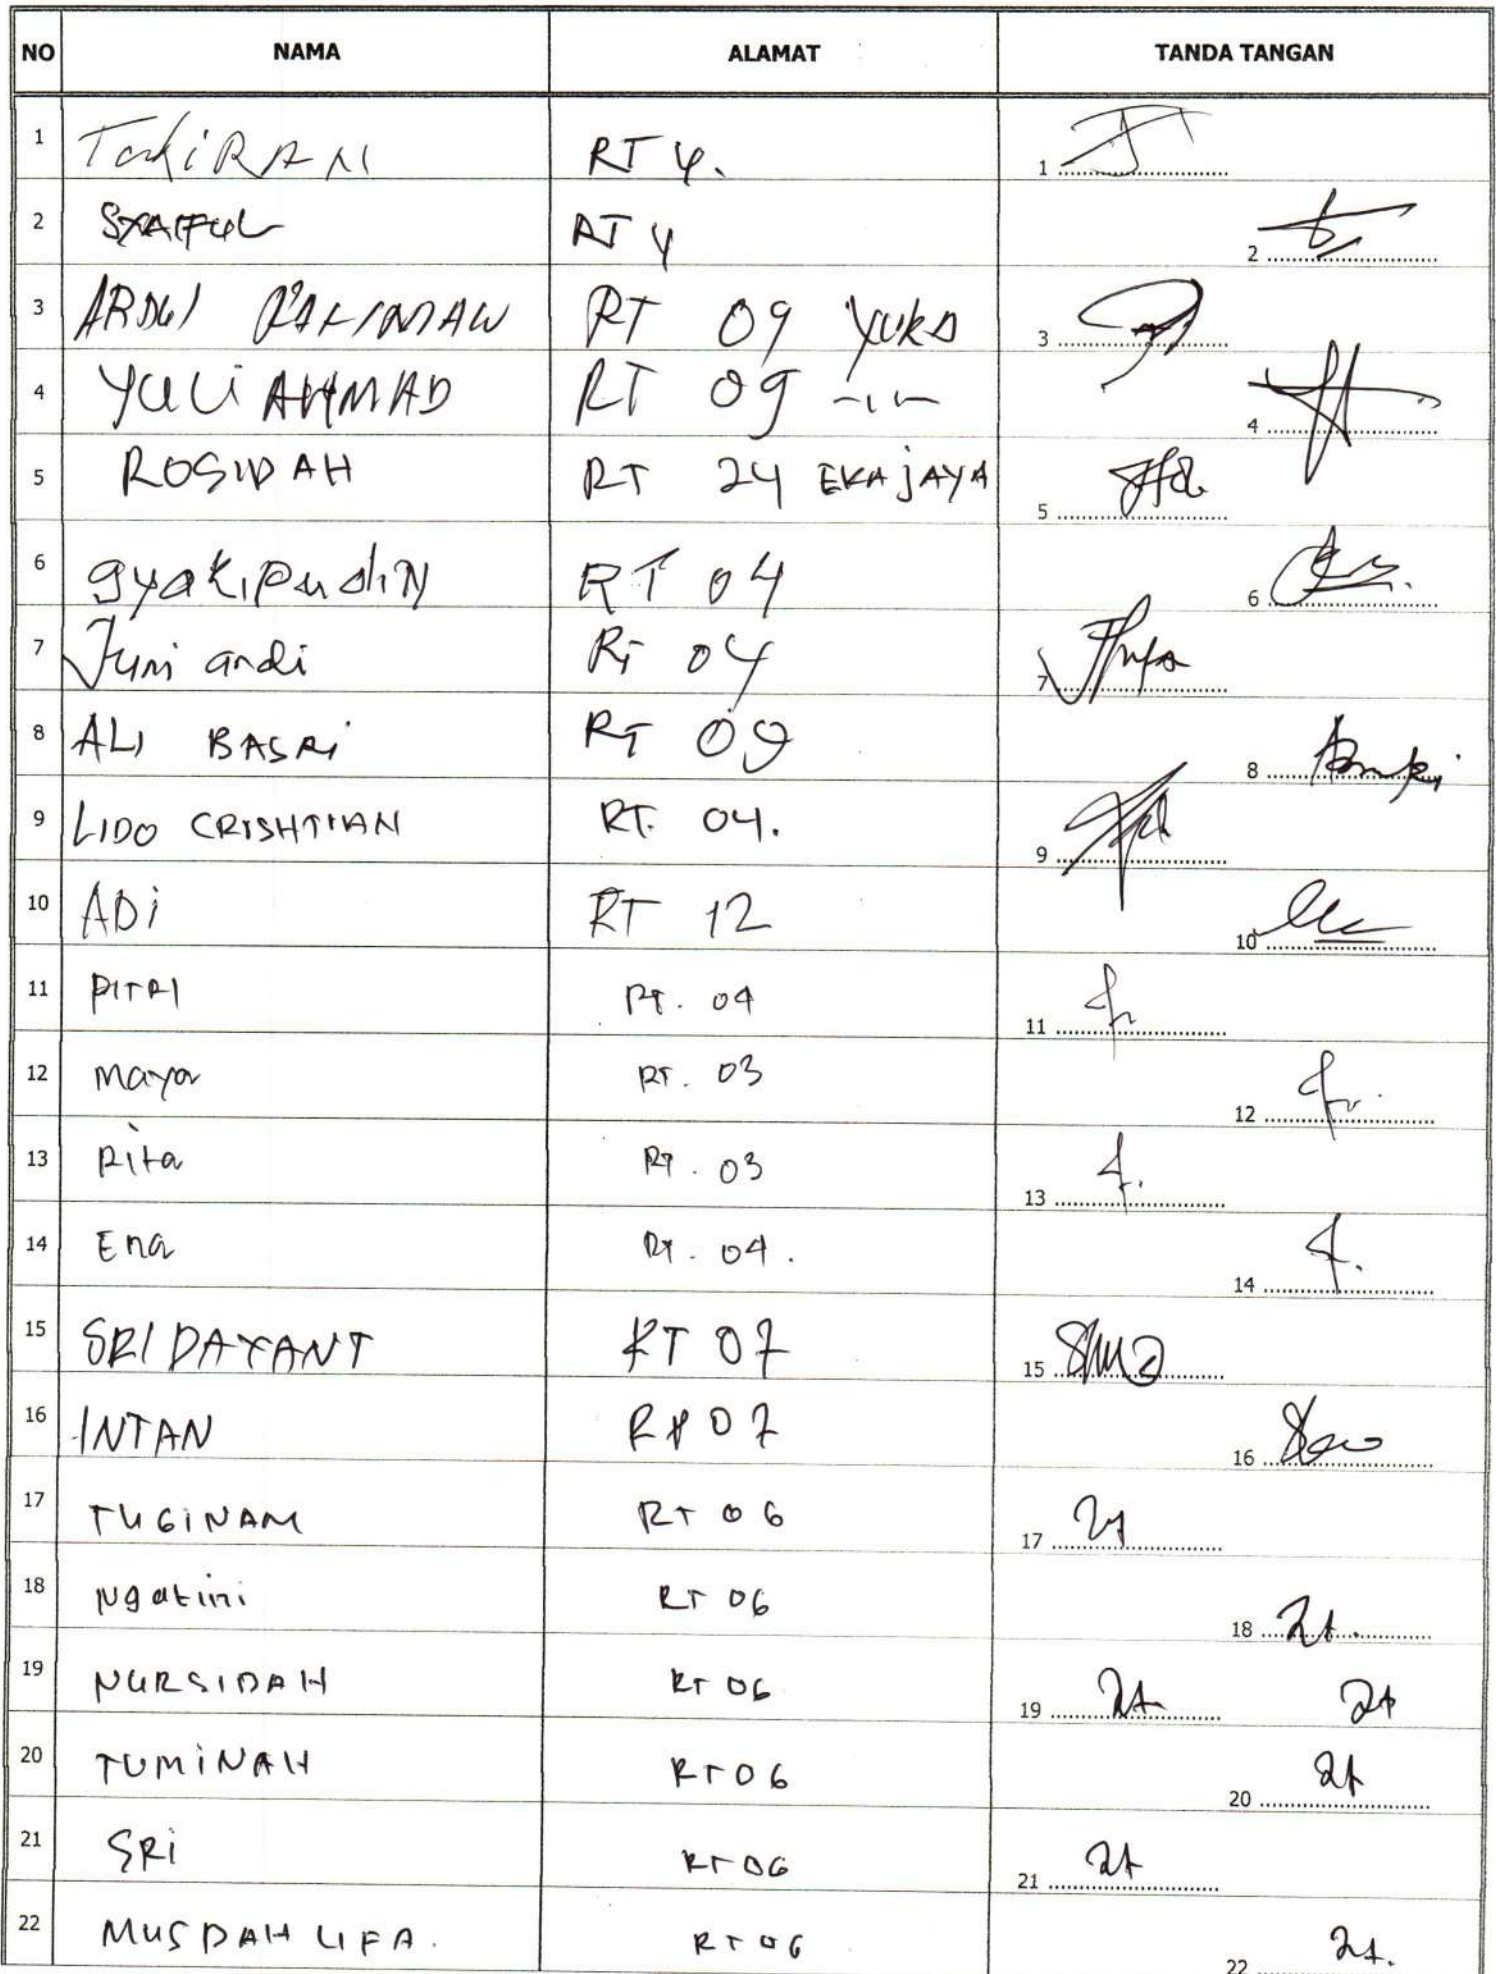 NO NAMA ALAMAT TANDA TANGAN
1 RT 4. 1
2 SYAIFUL RT 4 2
3 RT 09 YUKA 3
4 YULI AHMAD RT 09 -ıı- 4
5 ROSIDAH RT 24 EKAJAYA 5
6 RT 04 6
7 Juni andi RT 04 7
8 ALI BASRi RT 09 8
9 LIDO CRISHTIAN RT. 04. 9
10 ADi RT 12 10
11 PITRI RT. 04 11
12 Maya RT. 03 12
13 Rita RT. 03 13
14 Ena RT. 04. 14
15 SRI DAYANT RT 07 15
16 INTAN RT 07 16
17 TUGINAM RT 06 17
18 Ngatini RT 06 18
19 NURSIDAH RT 06 19
20 TUMiNAH RT 06 20
21 SRi RT 06 21
22 MUSDAH LIFA. RT 06 22